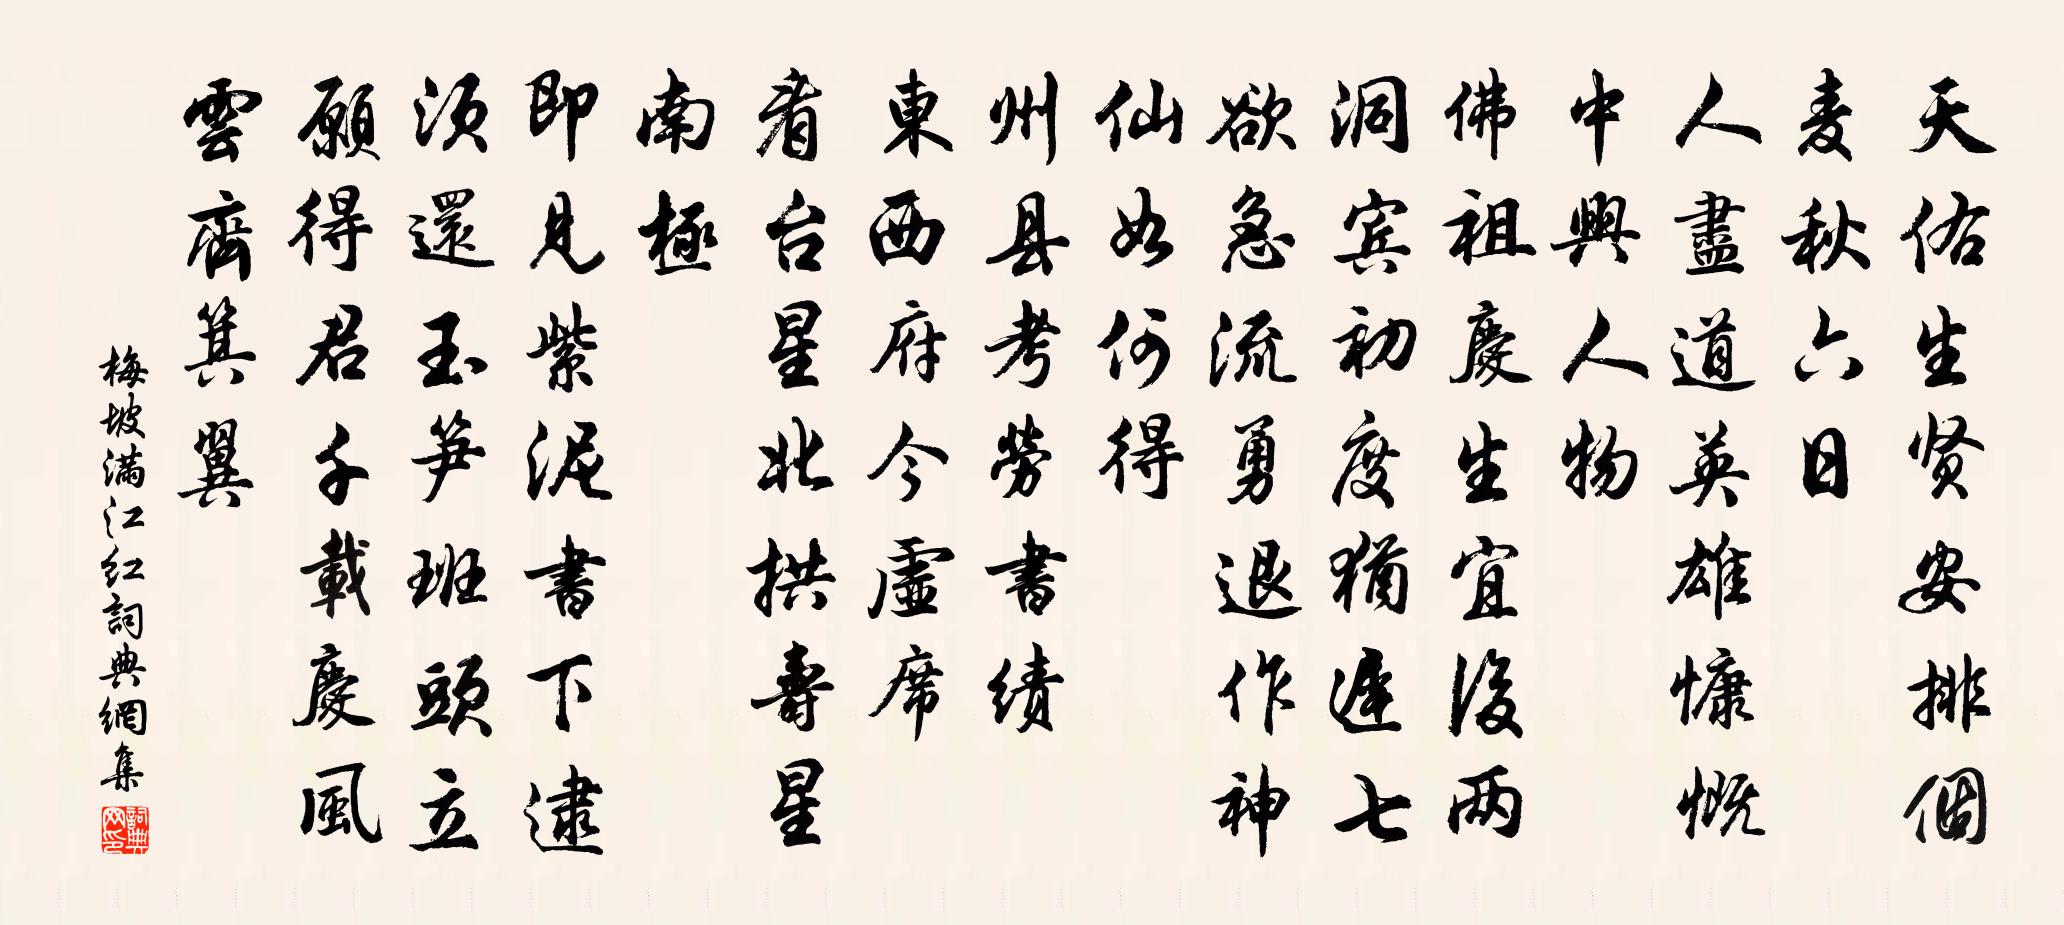 天佑生贤安排個
麦秋六日
人盡道英雄慷慨
中興人物
佛祖慶生宜後两
洞宾初度猶遲七
欲急流勇退作神
仙如何得
州县考劳書績
東西府今虚席
看台星北拱壽星
南極
即見紫泥書下逮
须還玉笋班頭立
願得君千載慶風
雲齊箕翼
梅坡满江红詞典網集
詞典网印